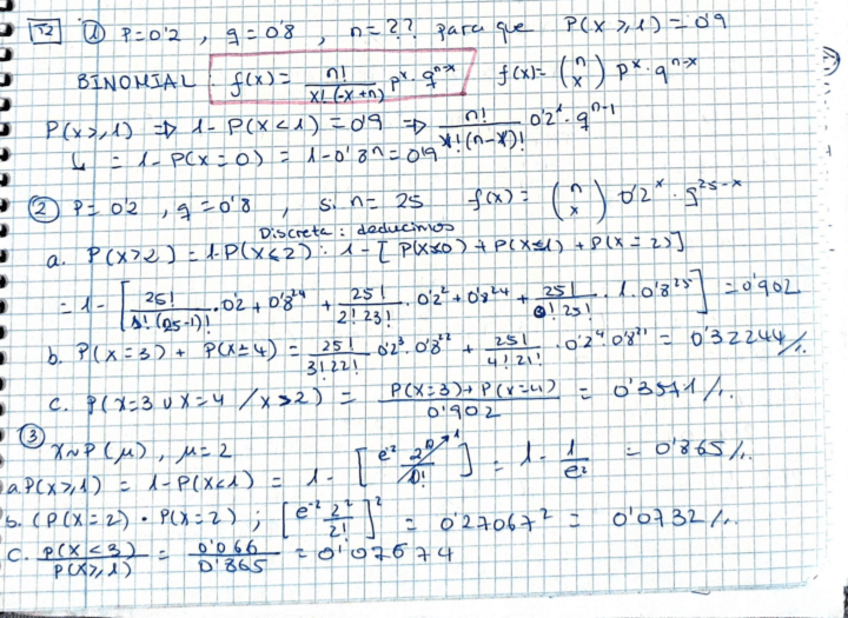 T2 ① P=0'2 , q=0'8 , n=?? para que P(X≥1)=0'9
BINOMIAL: f(x)= n!/(x!(-x+n)) p^x·q^(n-x) f(x)= (n x) p^x·q^(n-x)
P(x≥1) ⇒ 1-P(x<1)=0'9 ⇒ n!/(x!(n-x)!) 0'2^1·q^(n-1)
↳ = 1-P(x=0) = 1-0'8^n=0'9
② P=0'2 , q=0'8 , si n=25 f(x)= (n x) 0'2^x · q^(25-x)
Discreta: deducimos
a. P(x>2)=1-P(x≤2): 1-[P(x=0)+P(x=1)+P(x=2)]
=1-[25!/(1!(25-1)!)·0'2+0'8^24 + 25!/(2!23!)·0'2^2+0'8^24 + 25!/(0!25!)·1·0'8^25] =0'902
b. P(x=3) + P(x=4) = 25!/(3!22!) 0'2^3·0'8^22 + 25!/(4!21!)·0'2^4·0'8^21 = 0'32244//.
c. P(x=3 ∪ x=4 / x>2) = (P(x=3)+P(x=4))/0'902 = 0'3571//.
③ X~P(μ), μ=2
a. P(x≥1) = 1-P(x<1) = 1-[e^-2 2^0/0!] = 1-1/e^2 = 0'865//.
b. (P(x=2)·P(x=2) ; [e^-2 2^2/2!]^2 = 0'27067^2 = 0'0732//.
c. P(x<3)/P(x≥1) = 0'066/0'865 = 0'07674